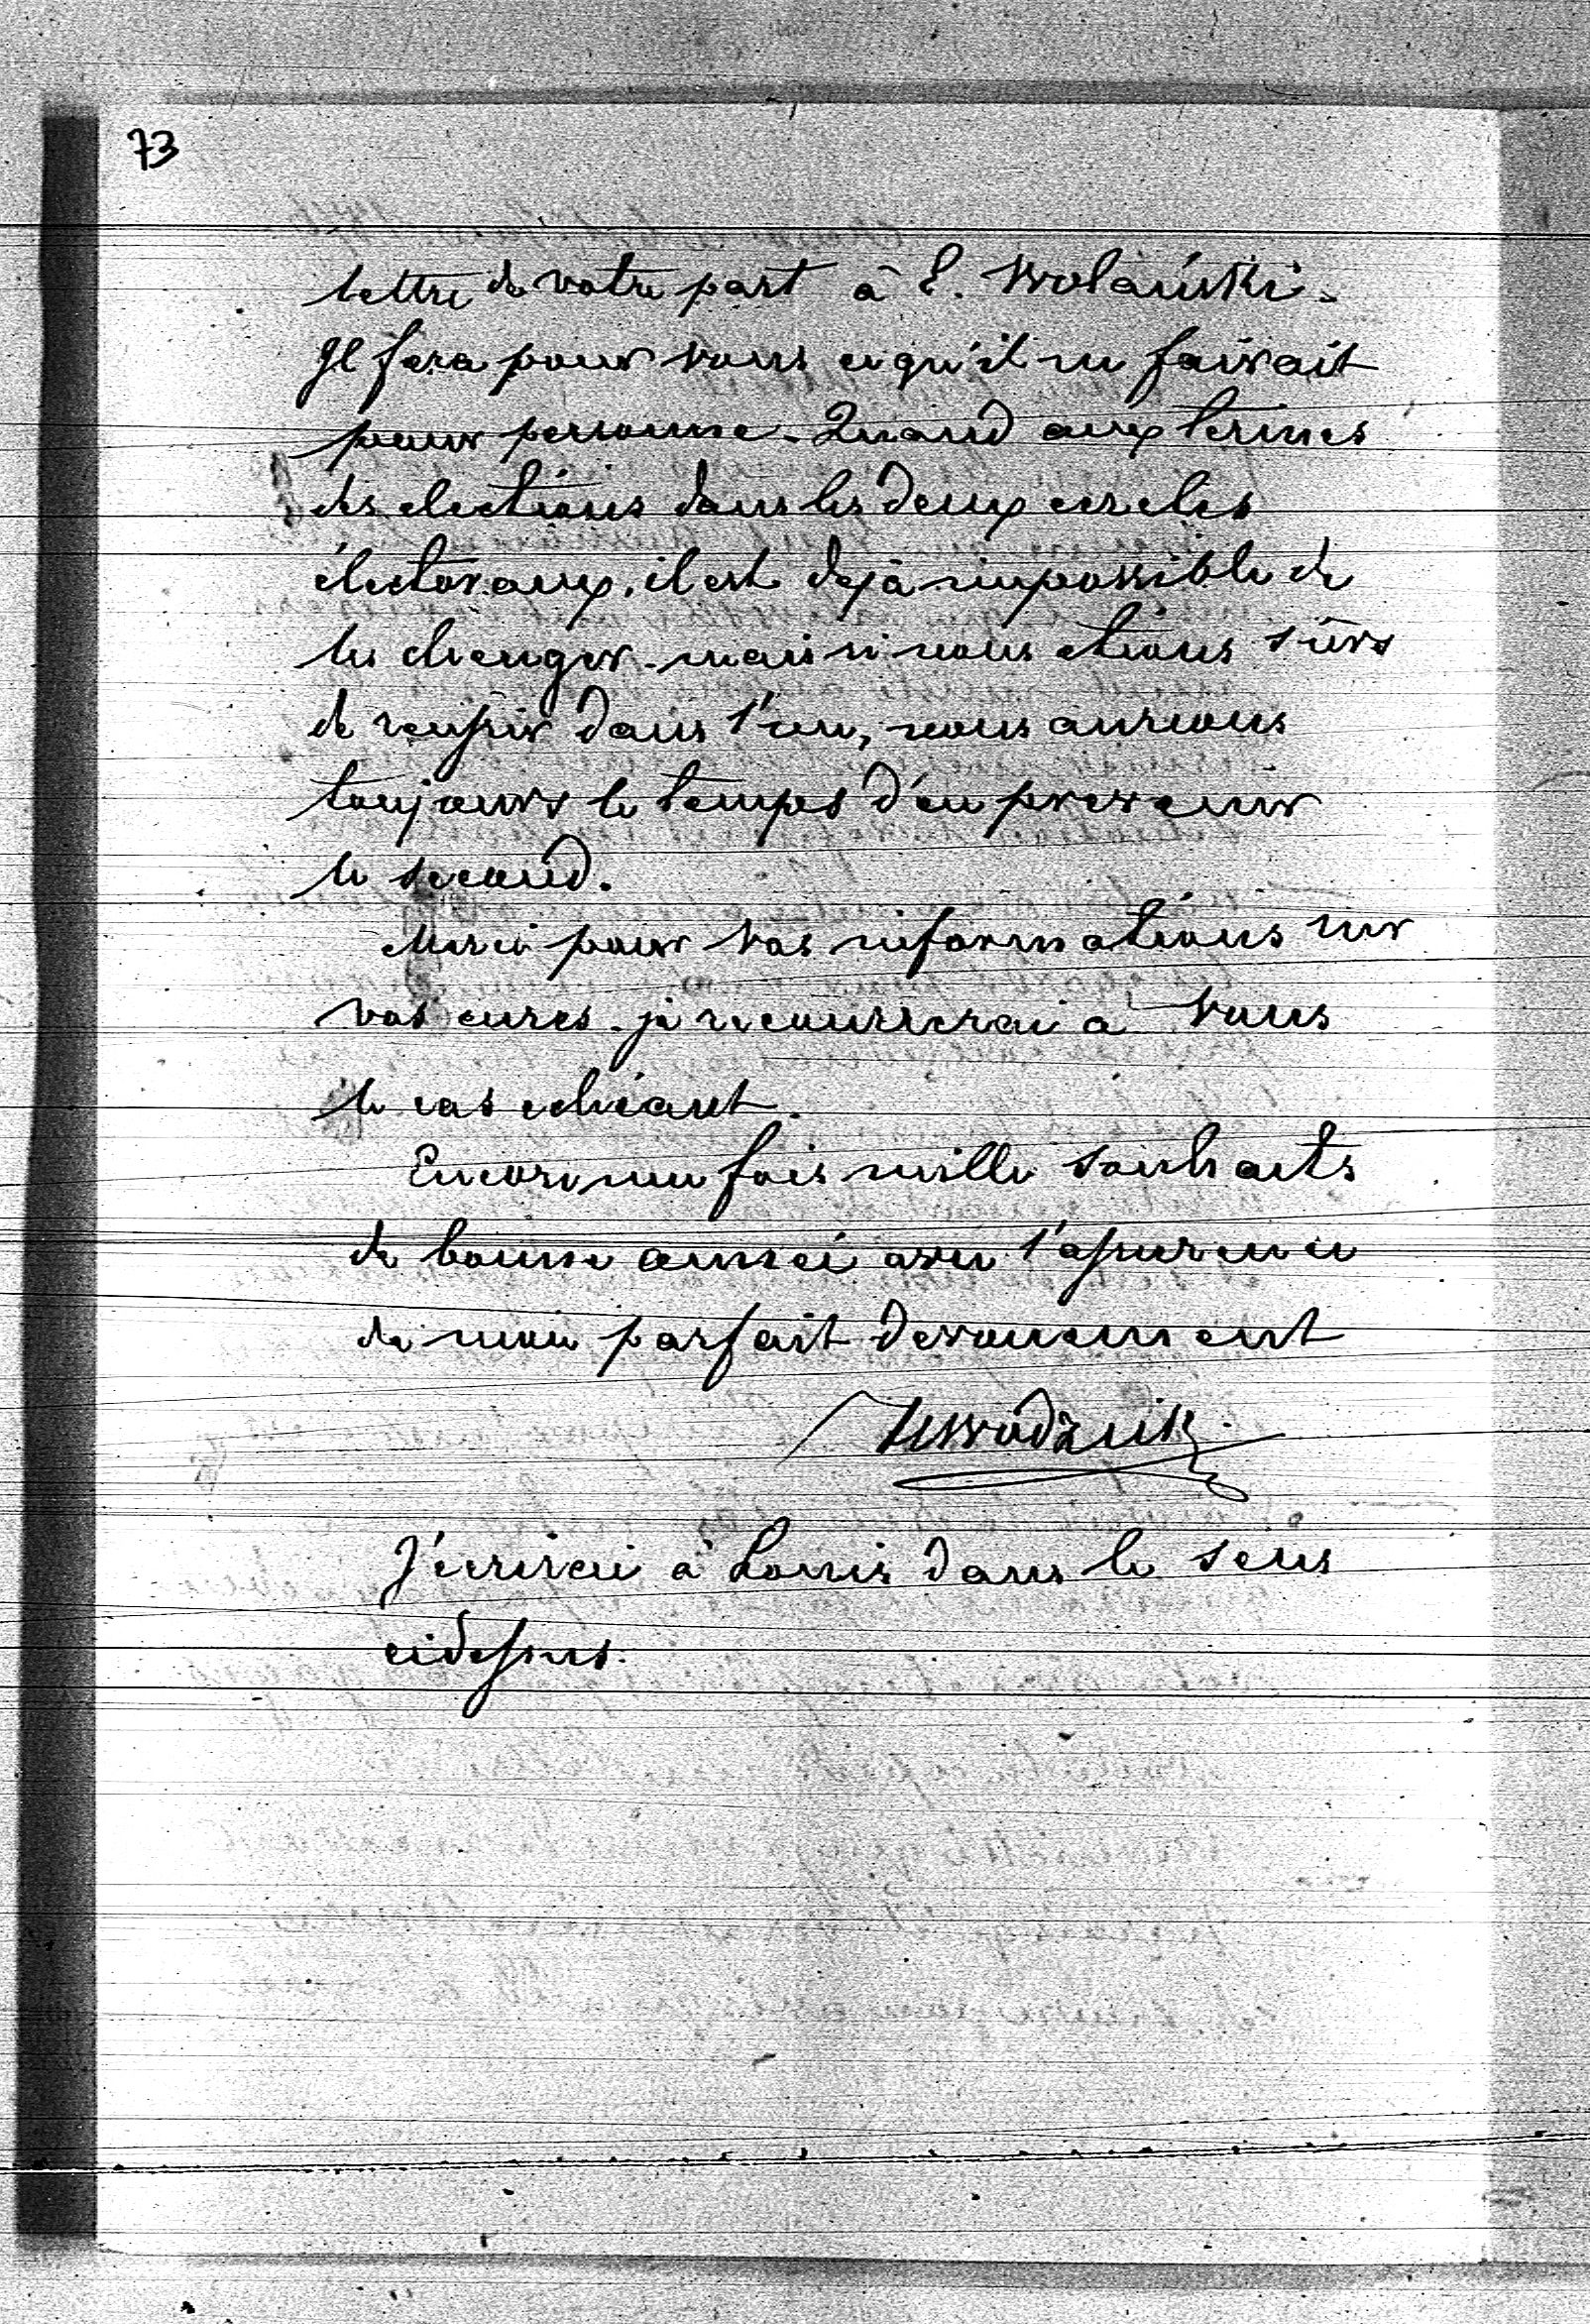 73
lettre de votre part à E. Wolański.
Il fera pour vous ce qu'il ne fairait
pour personne. Quand aux termes
des elections dans les deux cercles
électoraux, il est dejà impossible de
les changer. mais si nous etions sûrs
de reussir dans l'un, nous aurions
toujours le temps d'en prevenir
le second.
Merci pour vos informations sur
vos cures. je recourrerai à vous
le cas echéant.
Encore une fois mille souhaits
de bonne année avec l'assurence
de mon parfait devouement
J'ecrirai à Louis dans le sens
cidessus.